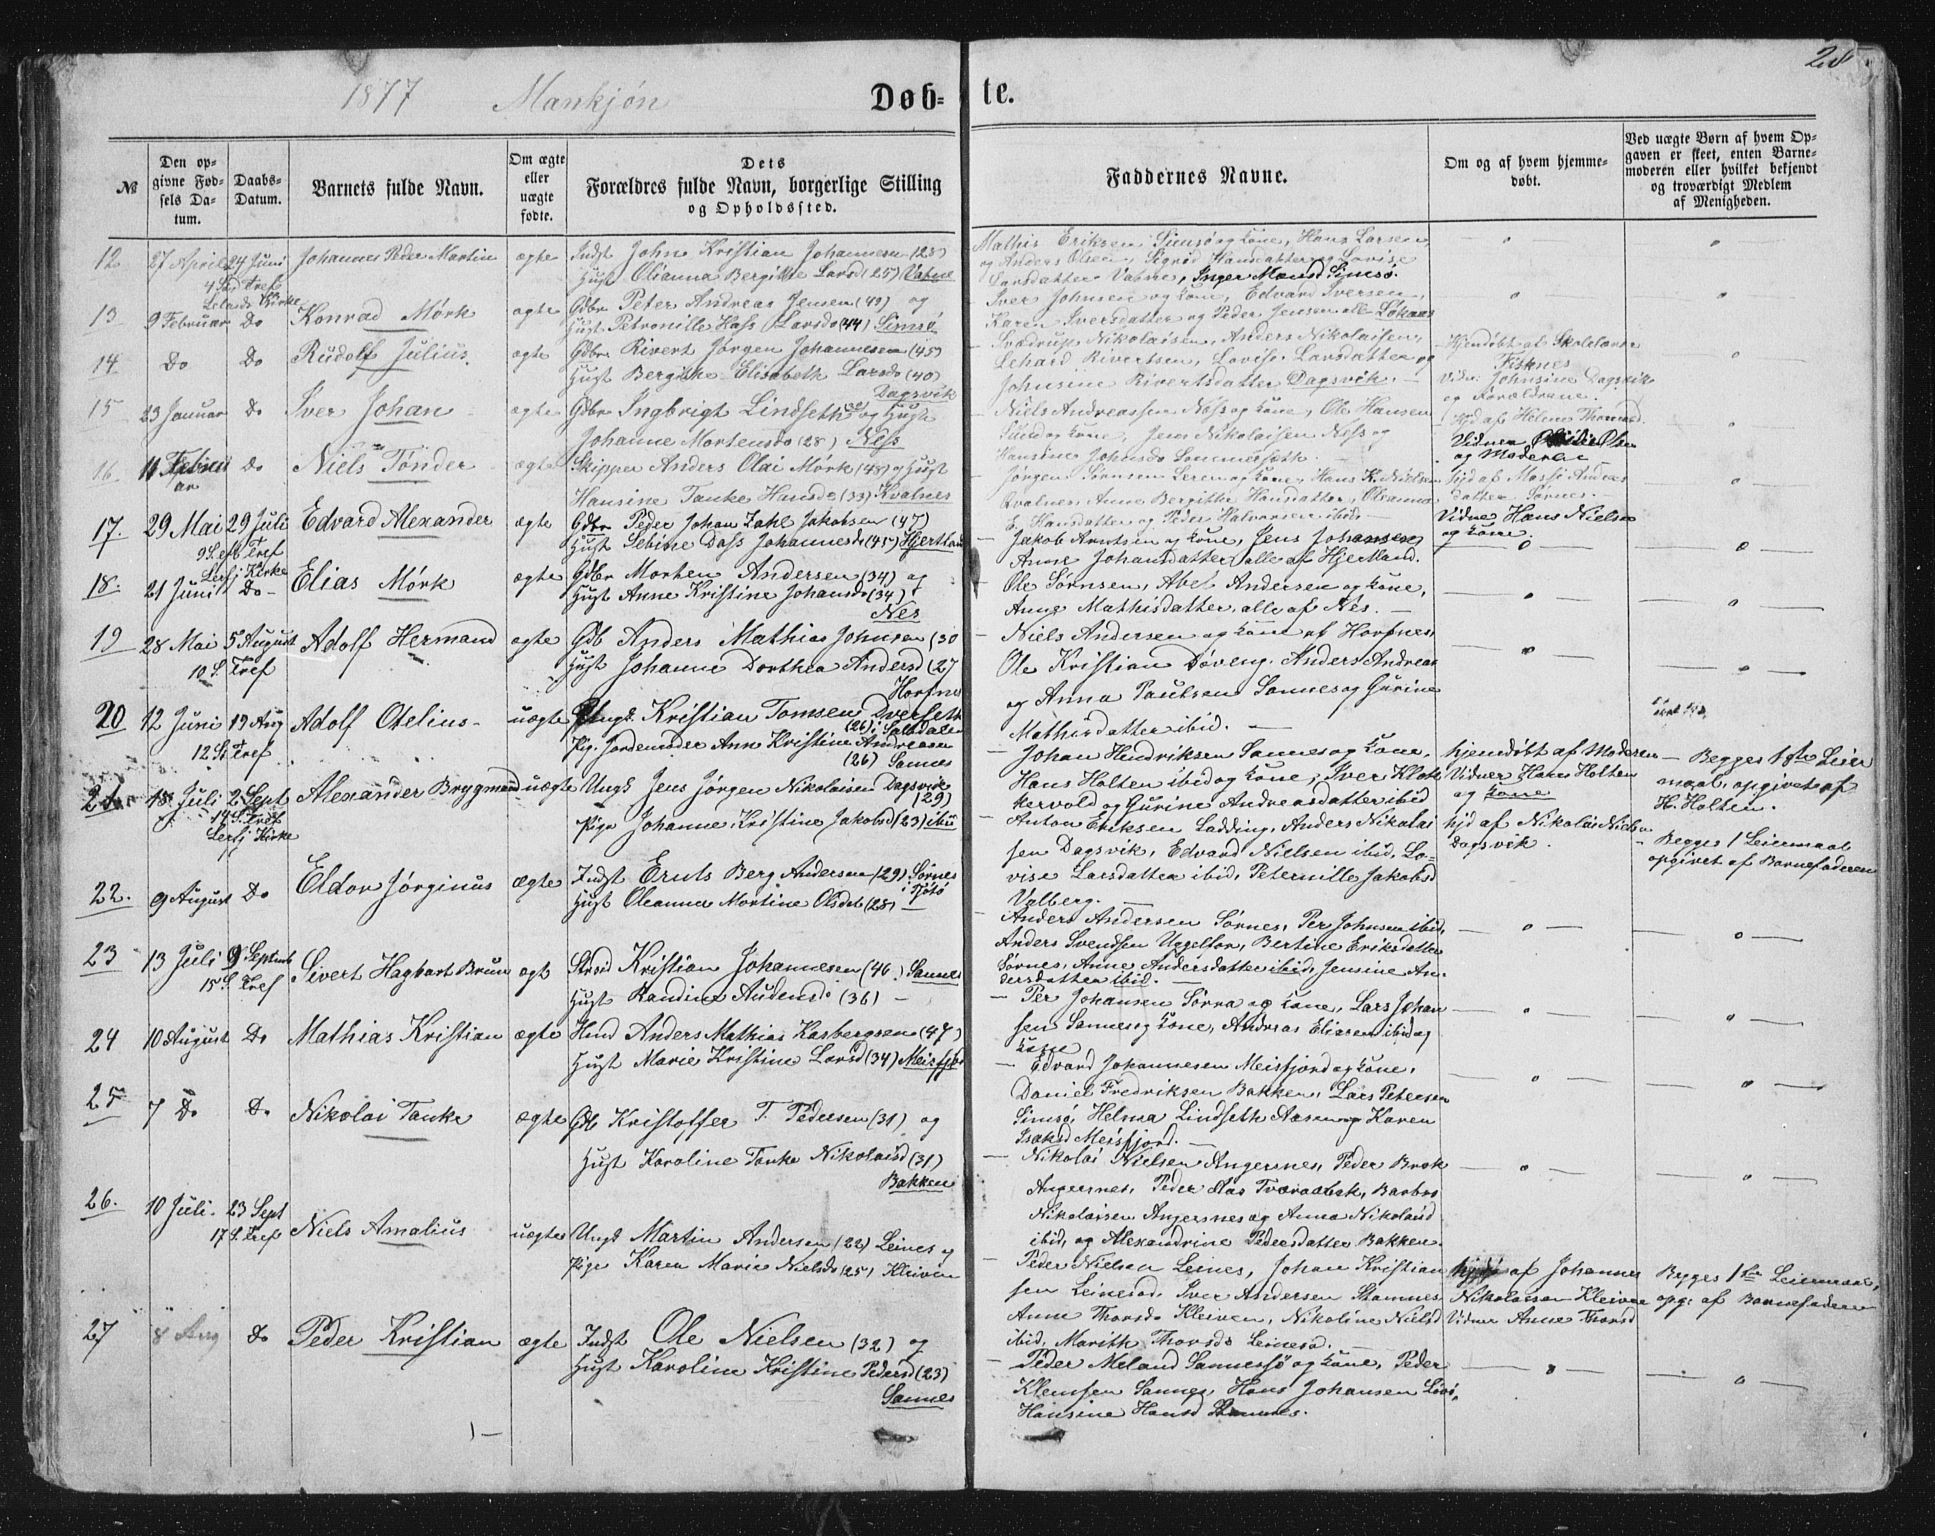 28
1877 Mankjøn
Døb-te.
№
Den opgivne Fødsels Datum.
Daabs-Datum.
Barnets fulde Navn.
Om ægte eller uægte fødte.
Dets Forældres fulde Navn, borgerlige Stilling og Opholdssted.
Faddernes Navne.
Om og af hvem hjemmedøbt.
Ved uægte Børn af hvem Opgaven er skeet, enten Barnemoderen eller hvilket bekjendt og troværdigt Medlem af Menigheden.
12 27 April 24 Juni Johannes Peder Martin ægte Indst John Kristian Johannesen (23)
4 S. e. Tref Hust Olianna Bergitte Larsd (25) Vatne
Mathis Eriksen Simsø og Kone, Hans Larsen,
og Anders Olsen, Sigrid Hansdatter og Lovise
Larsdatter Vatne, Inger Monsd Simsø.
13 9 Februar Do Konrad Mørk ægte Gdbr Peter Andreas Jensen (49) og
Hust. Petronille Hass Larsd (44) Simsø
Iver Johnsen og Kone, Edvard Iversen,
Karen Iversdatter og Peder Jensen alle
14 Do Do Rudolf Julius ægte Gdbr Rivert Jørgen Johannesen (45)
Hust Bergithe Elisabeth Larsd (40)
Dagsvik
Nikolaisen, Anders Nikolaisen,
Lehard Rivertsen, Lovise Larsdatter og
Johnsine Rivertsdatter Dagsvik.
Hjemdøbt af Skolelærer
Fisknes
Vidner Johnsine Dagsvik
og Forældrene.
15 23 Januar Do Iver Johan ægte Gdbr Ingbrigt Lindseth og Hust
Johanne Mortensd (28) Ness
Niels Andreassen Ness og Kone, Ole Hansen
Sund og Kone, Jens Nikolaisen Ness og
Hansine Johnsd
Hjd af Helene Thomasd
Vidner Olsen
og Moderen
16 11 Februar Do Niels Tønder ægte Skipper Anders Olai Mørk (48) og Hust
Hansine Tanke Hansd (33) Kvalnes
Jørgen Sørnsen Leren og Kone, Hans K. Nielsen
Kvalnes, Anne Bergithe Hansdatter, Oleanna
E. Hansdatter og Peder Halvorsen ibid
Hjd af Andreas
datter Sørnes.
Vidner Hans Nielsen
og Kone.
17. 29 Mai 29 Juli Edvard Alexander ægte Gdbr Peder Johan Zahl Jakobsen (47)
9 S. e. Tref Hust Sebine Dass Johannesd (45) Hjertland
Lerfj Kirke
Jakob Arntsen og Kone, Jens Johansen,
Anne Johansdatter, alle af Hjertland.
18. 21 Juni Do Elias Mørk ægte Gdbr Morten Andersen (34) og
Hust Anne Kristine Johansd (34)
Nes
Ole Sørnsen, Abel Andersen og Kone,
Anne Mathisdatter, alle af Nes.
19 28 Mai 5 August Adolf Hermand ægte Gdb Anders Mathias Johnsen (30
10 S. Tref Hust Johanne Dorthea Andersd (27
Niels Andersen og Kone af Horfnes,
Ole Kristian Døveng, Anders Andreas
og Anna Paulsen Sannes og Gurine
Mathisdatter ibid.
20 12 Juni 19 Aug Adolf Otelius uægte Ungk. Kristian Tomsen Dverseth
12 S. Tref (26) i Saltdalen
Pig. Jordemoder Ann Kristine Andreasen
(26) Sannes
Johan Hendriksen Sannes og Kone,
Hans Holten ibid og Kone, Iver Klok
kervold og Gurine Andreasdatter ibid
hjemdøbt af Moderen
Vidner Hans Holten
og Kone
Begges 1ste Leier
maal, opgivet af
H. Holten.
21. 18 Juli 2 Sept Alexander Brygmand uægte Ungk Jens Jørgen Nikolaisen Dagsvik
14 S. Tref (29)
Lerfj Kirke Pige Johanne Kristine Jakobsd (23) ibid
Anton Eriksen Ladding, Anders Nikolai
sen Dagsvik, Edvard Nielsen ibid, Lo-
vise Larsdatter ibid, Peternille Jakobsd
Valberg.
hjd af Nikolai Nielsen
Dagsvik.
Begges 1 Leiermaal
opgivet af Barnefaderen
22. 9 August Do Eldor Jørginus ægte Indst Ernts Berg Andersen (29) Sørnes
Hust Oleanna Mortine Olsdat (28) i Tjøtø
Anders Andersen Sørnes, Per Johnsen ibid,
Anders Svendsen, Bertine Eriksdatter
Sørnes, Anne Andersdatter ibid, Jensine An-
dersdatter ibid.
23 13 Juli 9 Septemb Sivert Hagbart Brun ægt Strsid Kristian Johannesen (46) Sannes
15 S. Tref Hust Randine Audensd (36)
Per Johansen Sørra og Kone, Lars Johan
sen Sannes og Kone, Andreas Eliasen ibid og
Kone
24 10 August Do Mathias Kristian ægte Husd Anders Mathias Kasbergsen (47)
Hust Marie Kristine Larsd (34) Meisfjord
Edvard Johannesen Meisfjord og Kone,
Daniel Fredriksen Bakken, Lars Petersen
Simsø, Helma Lindseth Aasen og Karen
Isaksd Meisfjord.
25 7 Do Do Nikolai Tanke ægte Gdb Kristoffer T. Pedersen (31) og
Hust Karoline Tanke Nikolaisd (31)
Bakken
Nikolai Nielsen Angersnes, Peder Brok
Angersnes, Peder Aas Tveraabak, Barbro
Nikolaisen Angersnes og Anna Nikolaisd
ibid, og Alexandrine Pedersdatter Bakken.
26. 10 Juli 23 Sept Niels Amalius uægte Ungk Martin Andersen (22) Leines og
17 S. Tref Pige Karen Marie Nielsd (25) Kleiven
Peder Nielsen Leines, Johan Kristian
sen Leinesod, Iver Andersen Stamnes
Anne Thorsd Kleiven, Nikoline Nielsd
ibid, Marith Thorsd Leinesod.
hjd af Johannes
Nikolaisen Kleiven
Vidner Anne Thorsd
Begges 1ste Leiermaal,
opg: af Barnefaderen
27 8 Aug Do Peder Kristian ægte Indst Ole Nielsen (32) og
Hust Karoline Kristine Pedersd (23)
Sannes
Peder Meland Sannessø og Kone, Peder
Klemsen Sannes, Hans Johansen
Hansine Hansd Sannes.